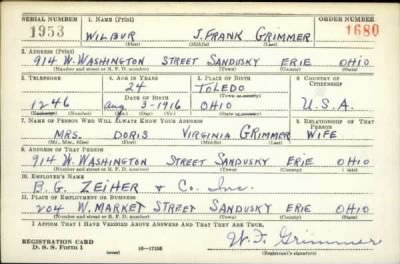 SERIAL NUMBER 1. NAME (Print) ORDER NUMBER
1953 WILBUR J. FRANK GRIMMER 1680
(First) (Middle) (Last)
2. ADDRESS (Print)
914 W. WASHINGTON STREET SANDUSKY ERIE OHIO
(Number and street or R. F. D. number) (Town) (County) (State)
3. TELEPHONE 4. AGE IN YEARS 5. PLACE OF BIRTH 6. COUNTRY OF CITIZENSHIP
24 TOLEDO
DATE OF BIRTH (Town or county)
1246 Aug 3-1916 OHIO U.S.A.
(Mo.) (Day) (Yr.) (State or country)
7. NAME OF PERSON WHO WILL ALWAYS KNOW YOUR ADDRESS 8. RELATIONSHIP OF THAT PERSON
MRS. DORIS VIRGINIA GRIMMER WIFE
(Mr., Mrs., Miss) (First) (Middle) (Last)
9. ADDRESS OF THAT PERSON
914 W. WASHINGTON STREET SANDUSKY ERIE OHIO
(Number and street or R. F. D. number) (Town) (County) (State)
10. EMPLOYER'S NAME
B. G. ZEIHER & CO. Inc.
11. PLACE OF EMPLOYMENT OR BUSINESS
204 W. MARKET STREET SANDUSKY ERIE OHIO
(Number and street or R. F. D. number) (Town) (County) (State)
I AFFIRM THAT I HAVE VERIFIED ABOVE ANSWERS AND THAT THEY ARE TRUE.
REGISTRATION CARD
D. S. S. Form 1 W. F. Grimmer
(over) 16—17105 (Registrant's signature)